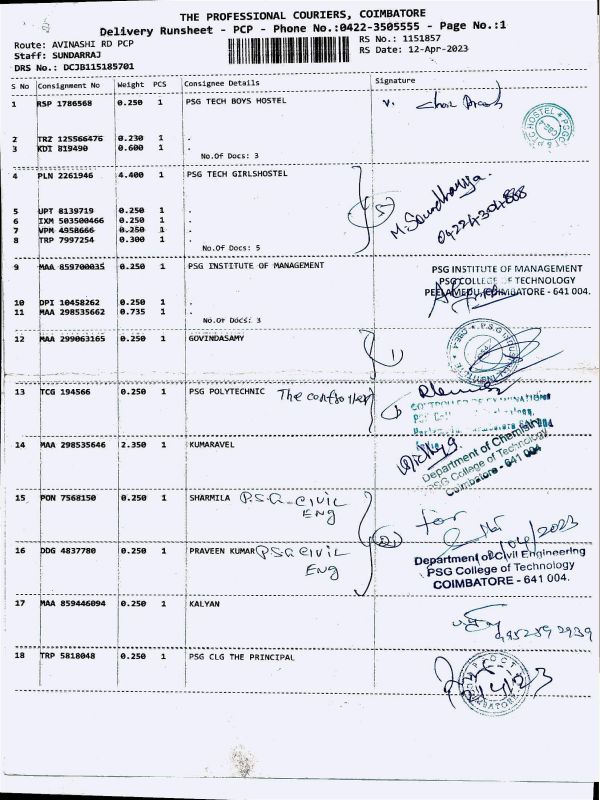 THE PROFESSIONAL COURIERS, COIMBATORE
Delivery Runsheet - PCP - Phone No.:0422-3505555 - Page No.:1
Route: AVINASHI RD PCP
RS No.: 1151857
Staff: SUNDARRAJ
RS Date: 12-Apr-2023
DRS No.: DCJB115185701
S No Consignment No Weight PCS Consignee Details Signature
1 RSP 1786568 0.250 1 PSG TECH BOYS HOSTEL
2 TRZ 125566476 0.230 1 .
3 KDI 819490 0.600 1 .
No.Of Docs: 3
4 PLN 2261946 4.400 1 PSG TECH GIRLSHOSTEL
(5) M.Soundharya.
5 UPT 8139719 0.250 1 .
6 IXM 503500466 0.250 1 .
7 VPM 4958666 0.250 1 .
8 TRP 7997254 0.300 1 .
No.Of Docs: 5
9 MAA 859700035 0.250 1 PSG INSTITUTE OF MANAGEMENT
PSG INSTITUTE OF MANAGEMENT
PSG COLLEGE OF TECHNOLOGY
PEELAMEDU, COIMBATORE - 641 004.
10 DPI 10458262 0.250 1 .
11 MAA 298535662 0.735 1 .
No.Of Docs: 3
12 MAA 299063165 0.250 1 GOVINDASAMY
13 TCG 194566 0.250 1 PSG POLYTECHNIC The controller
CONTROLLER OF EXAMINATIONS
14 MAA 298535646 2.350 1 KUMARAVEL
Department of Chemistry
PSG College of Technology
Coimbatore - 641 004
15 PON 7568150 0.250 1 SHARMILA P.S.G-CIVIL
ENG
for
16 DDG 4837780 0.250 1 PRAVEEN KUMAR PSG CIVIL
ENG
(2)
Department of Civil Engineering
PSG College of Technology
COIMBATORE - 641 004.
17 MAA 859446094 0.250 1 KALYAN
18 TRP 5818048 0.250 1 PSG CLG THE PRINCIPAL